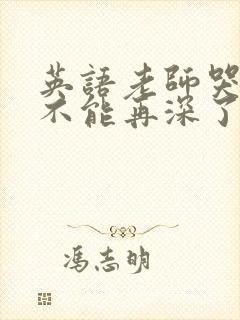 英語老師哭
不能再深了
馮志明